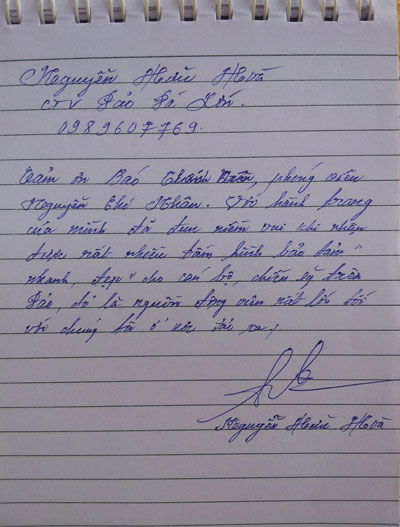 Nguyễn Hữu Hoà
CTV Đảo Đá Lớn.
0989607769.
Cảm ơn Báo Thanh Niên, phóng viên
Nguyễn Chí Nhân. Với hành trang
của mình đã đem niềm vui khi nhận
được rất nhiều tấm hình bảo tản "
nhanh, đẹp" cho cán bộ, chiến sỹ trên
Đảo, đó là nguồn động viên rất lớn tới
với chúng tôi ở nơi đảo xa!
Nguyễn Hữu Hoà